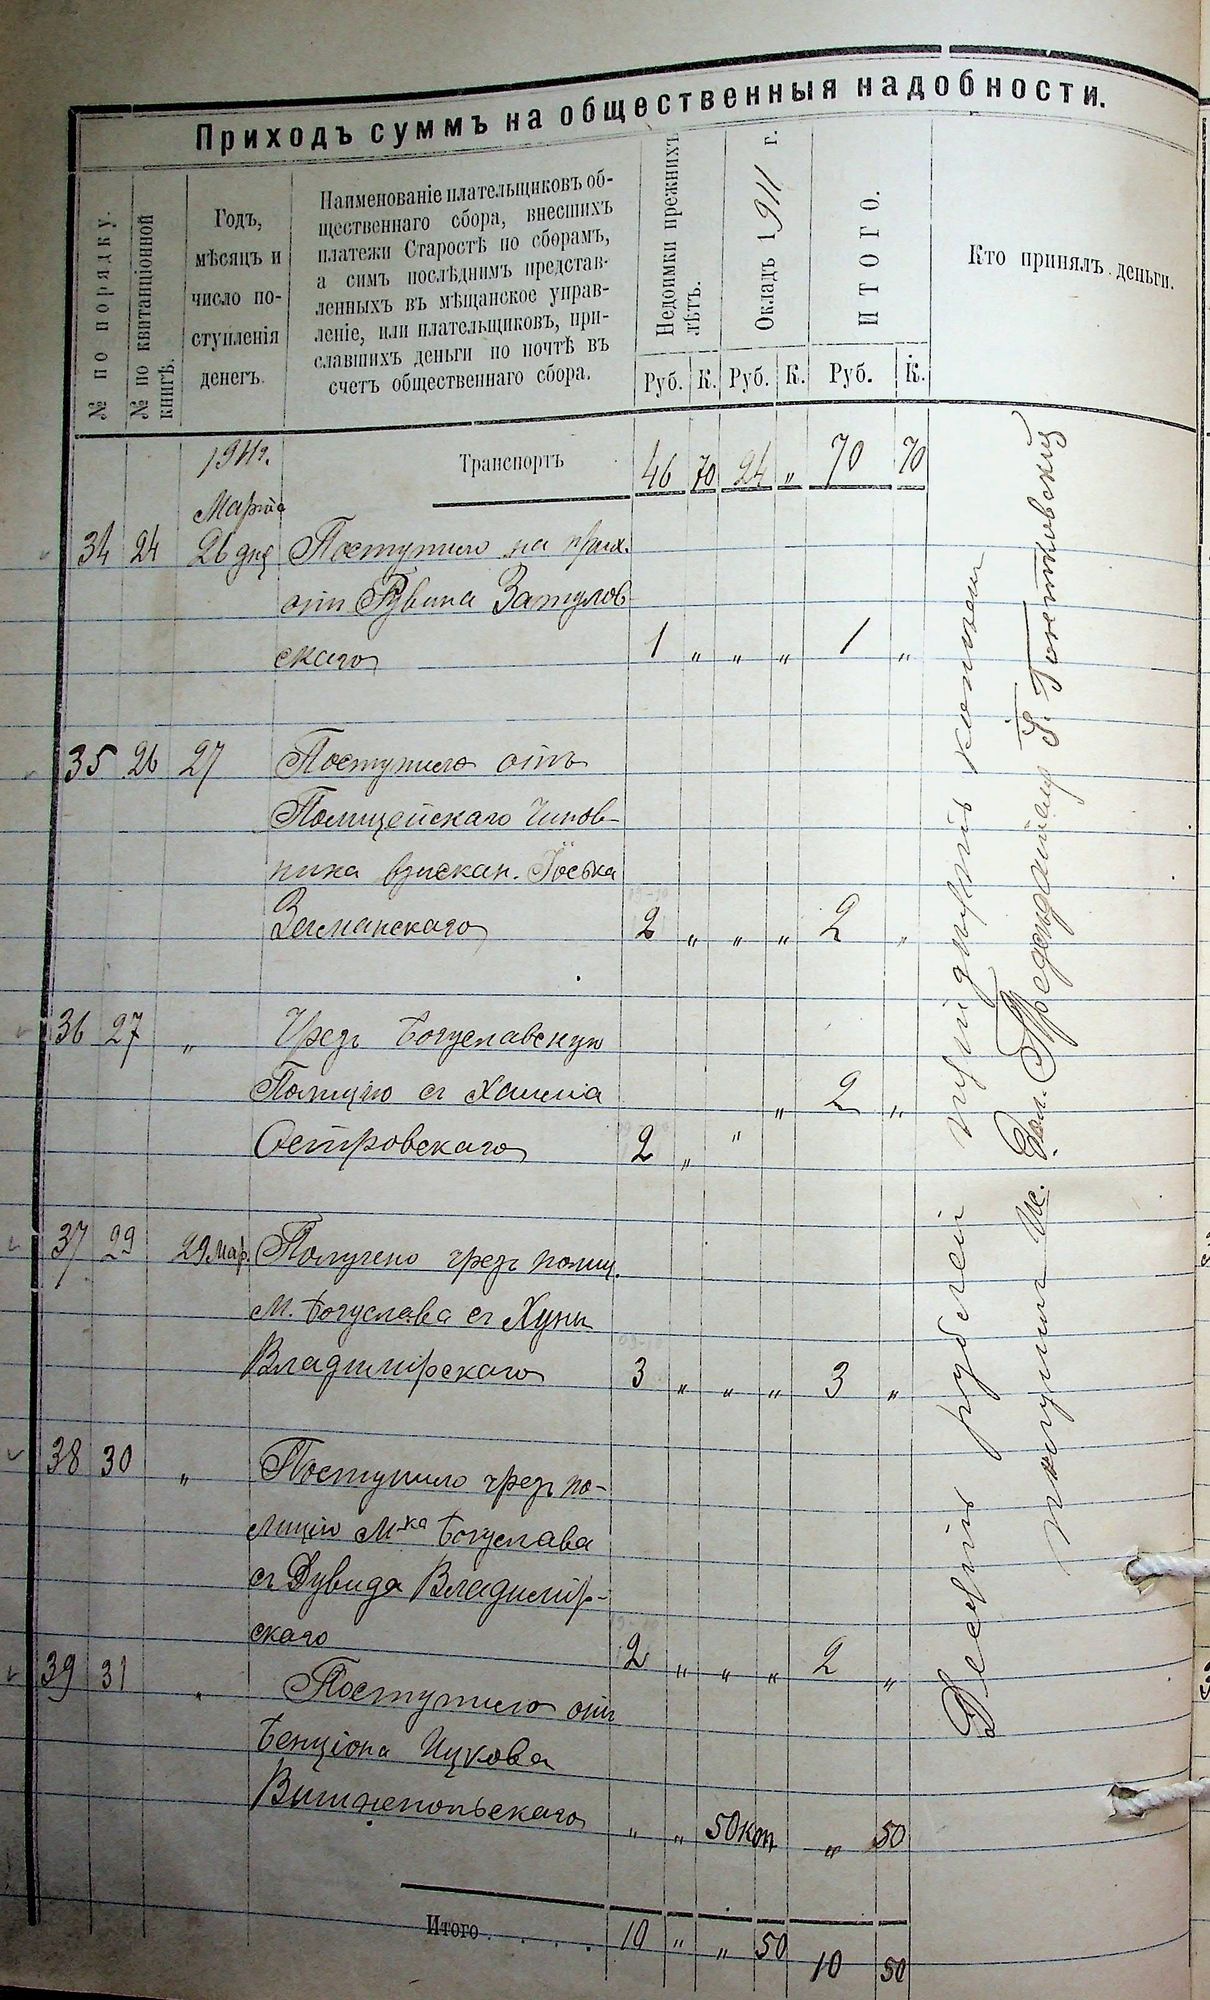 Приходъ суммъ на общественныя надобности.
№ по порядку.
№ по квитанціонной
книгѣ.
Годъ,
мѣсяцъ и
число по-
ступленія
денегъ.
Наименованіе плательщиковъ об-
щественнаго сбора, внесшихъ
платежи Старостѣ по сборамъ,
а симъ послѣднимъ представ-
ленныхъ въ мѣщанское управ-
леніе, или плательщиковъ, при-
славшихъ деньги по почтѣ въ
счетъ общественнаго сбора.
Недоимки прежнихъ
лѣтъ.
Окладъ 1911 г.
ИТОГО.
Руб. К. Руб. К. Руб. К.
Кто принялъ деньги.
1911г. Транспортъ 46 70 24 " 70 70
Марта
34 24 26 дня Поступило на прих.
отъ Рувина Затулов-
скаго 1 " " " 1 "
35 26 27 Поступило отъ
Полицейскаго Чинов-
ника взыскан. Іоська
Зельманскаго 2 " " " 2 "
36 27 " Чрезъ Богуславскую
Полицію съ Хаима
Островскаго 2 " " " 2 "
37 29 29 мар. Получено чрезъ полиц.
М. Богуслава съ Хуны
Владимірскаго 3 " " " 3 "
38 30 " Поступило чрезъ по-
лицію М-ка Богуслава
съ Дувида Владимір-
скаго 2 " " " 2 "
39 31 " Поступило отъ
Бенціона Ицкова
Вишнепольскаго " " 50 коп " 50
Итого . . . . 10 " " 50 10 50
Десять рублей пятьдесятъ копѣекъ
получилъ И. Дол. Предсѣдателя